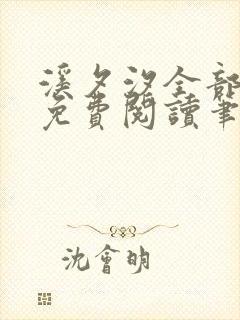 溪夕汐全部
免費閱讀筆
沈會明